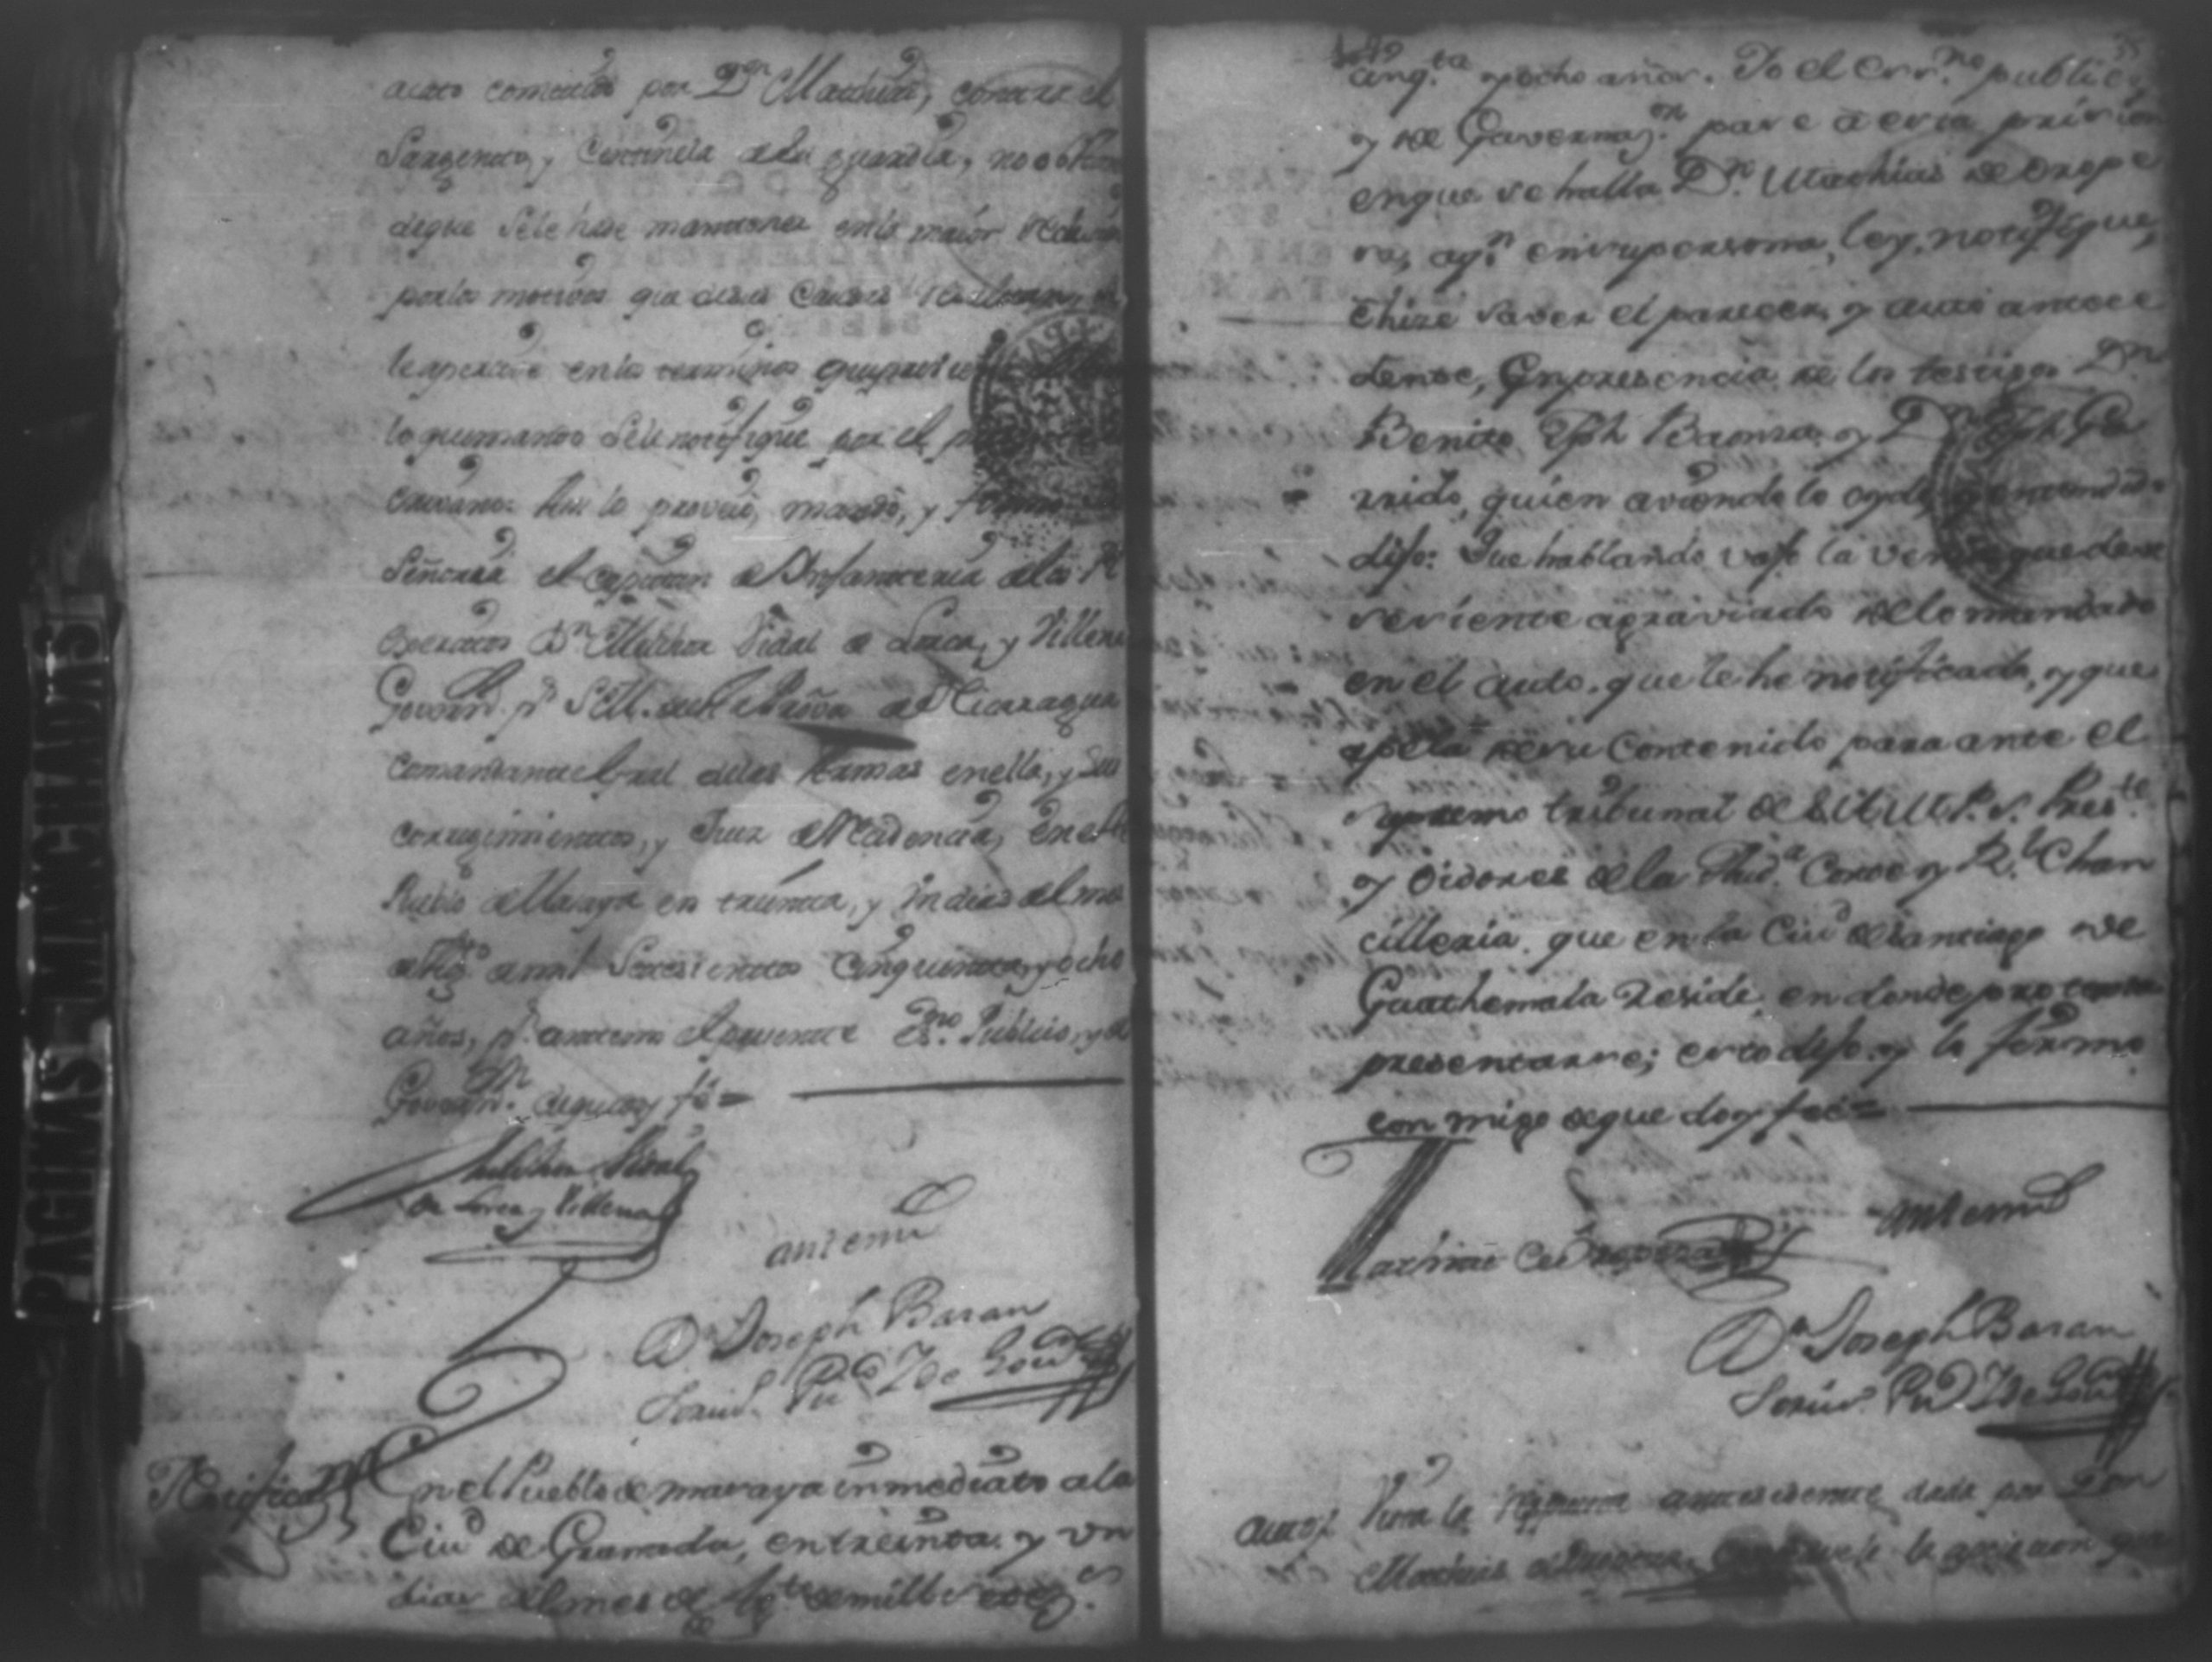 acato cometido por Dn Mathias, contra el
Sargento, y Centinela de la guardia, no obstan
de que se le hase mantener en la maior
por los motivos que de esta Causa
le apersive en los terminos que previene
lo que mando se le notifique por el
escrivano: Asi lo proveió, mandó, y firmó
Señoria el Capitan de Infanteria de los Rs
exercitos Dn Melchor Vidal de Lorca, y Villena
Governr. pr S.M. de esta Prova de Nicaragua
Comandante Gral de las Armas en ella, y sus
corregimientos, y Juez de Residencia, en este
Pueblo de Masaya en treinta, y un dias del mes
de Agto de mil Setesientos Cinquenta, y ocho
años, pr. ante mi el presente Esno. Publico, y de
Governn. de que doy fé =
Melchor Vidal
de Lorca y Villena
ante mi
Dn Joseph Baran
Scriv. Puco Y de Govn
Notificazn
En el Pueblo de masaya inmediato a la
Ciud de Granada, en treinta y un
dias del mes de Agto de mill setesos
cinqta y ocho años. Yo el Essno publico,
y de Governazn pase a esta prision
en que se halla Dn Mathias de Orope
sa, a qn en su persona, ley, notifique,
e hize saver el parecer, y auto antece
dente, en presencia de los testigos Dn
Benito Jph Baonza y Dn Jph Ga
rrido, quien aviendolo oydo, y entendido
dijo: Que hablando vajo la venia que deve
se siente agraviado de lo mandado
en el auto, que le he notificado, y que
apela de su contenido para ante el
supremo tribunal de los S.S. Preste
y oidores de la Audа Corte y Rl Chan
cilleria que en la Ciud de Santiago de
Guathemala Reside, en donde protesta
presentarse; esto dijo, y lo firmo
con migo de que doy fee =
Mathias de Oropesa
ante mi
Dn Joseph Baran
Scriv. Puco Y de Govn
Auto
Vista la respuesta antesedente dada por Don
Mathias de Oropesa, la apelacion que
PAGINAS MANCHADAS